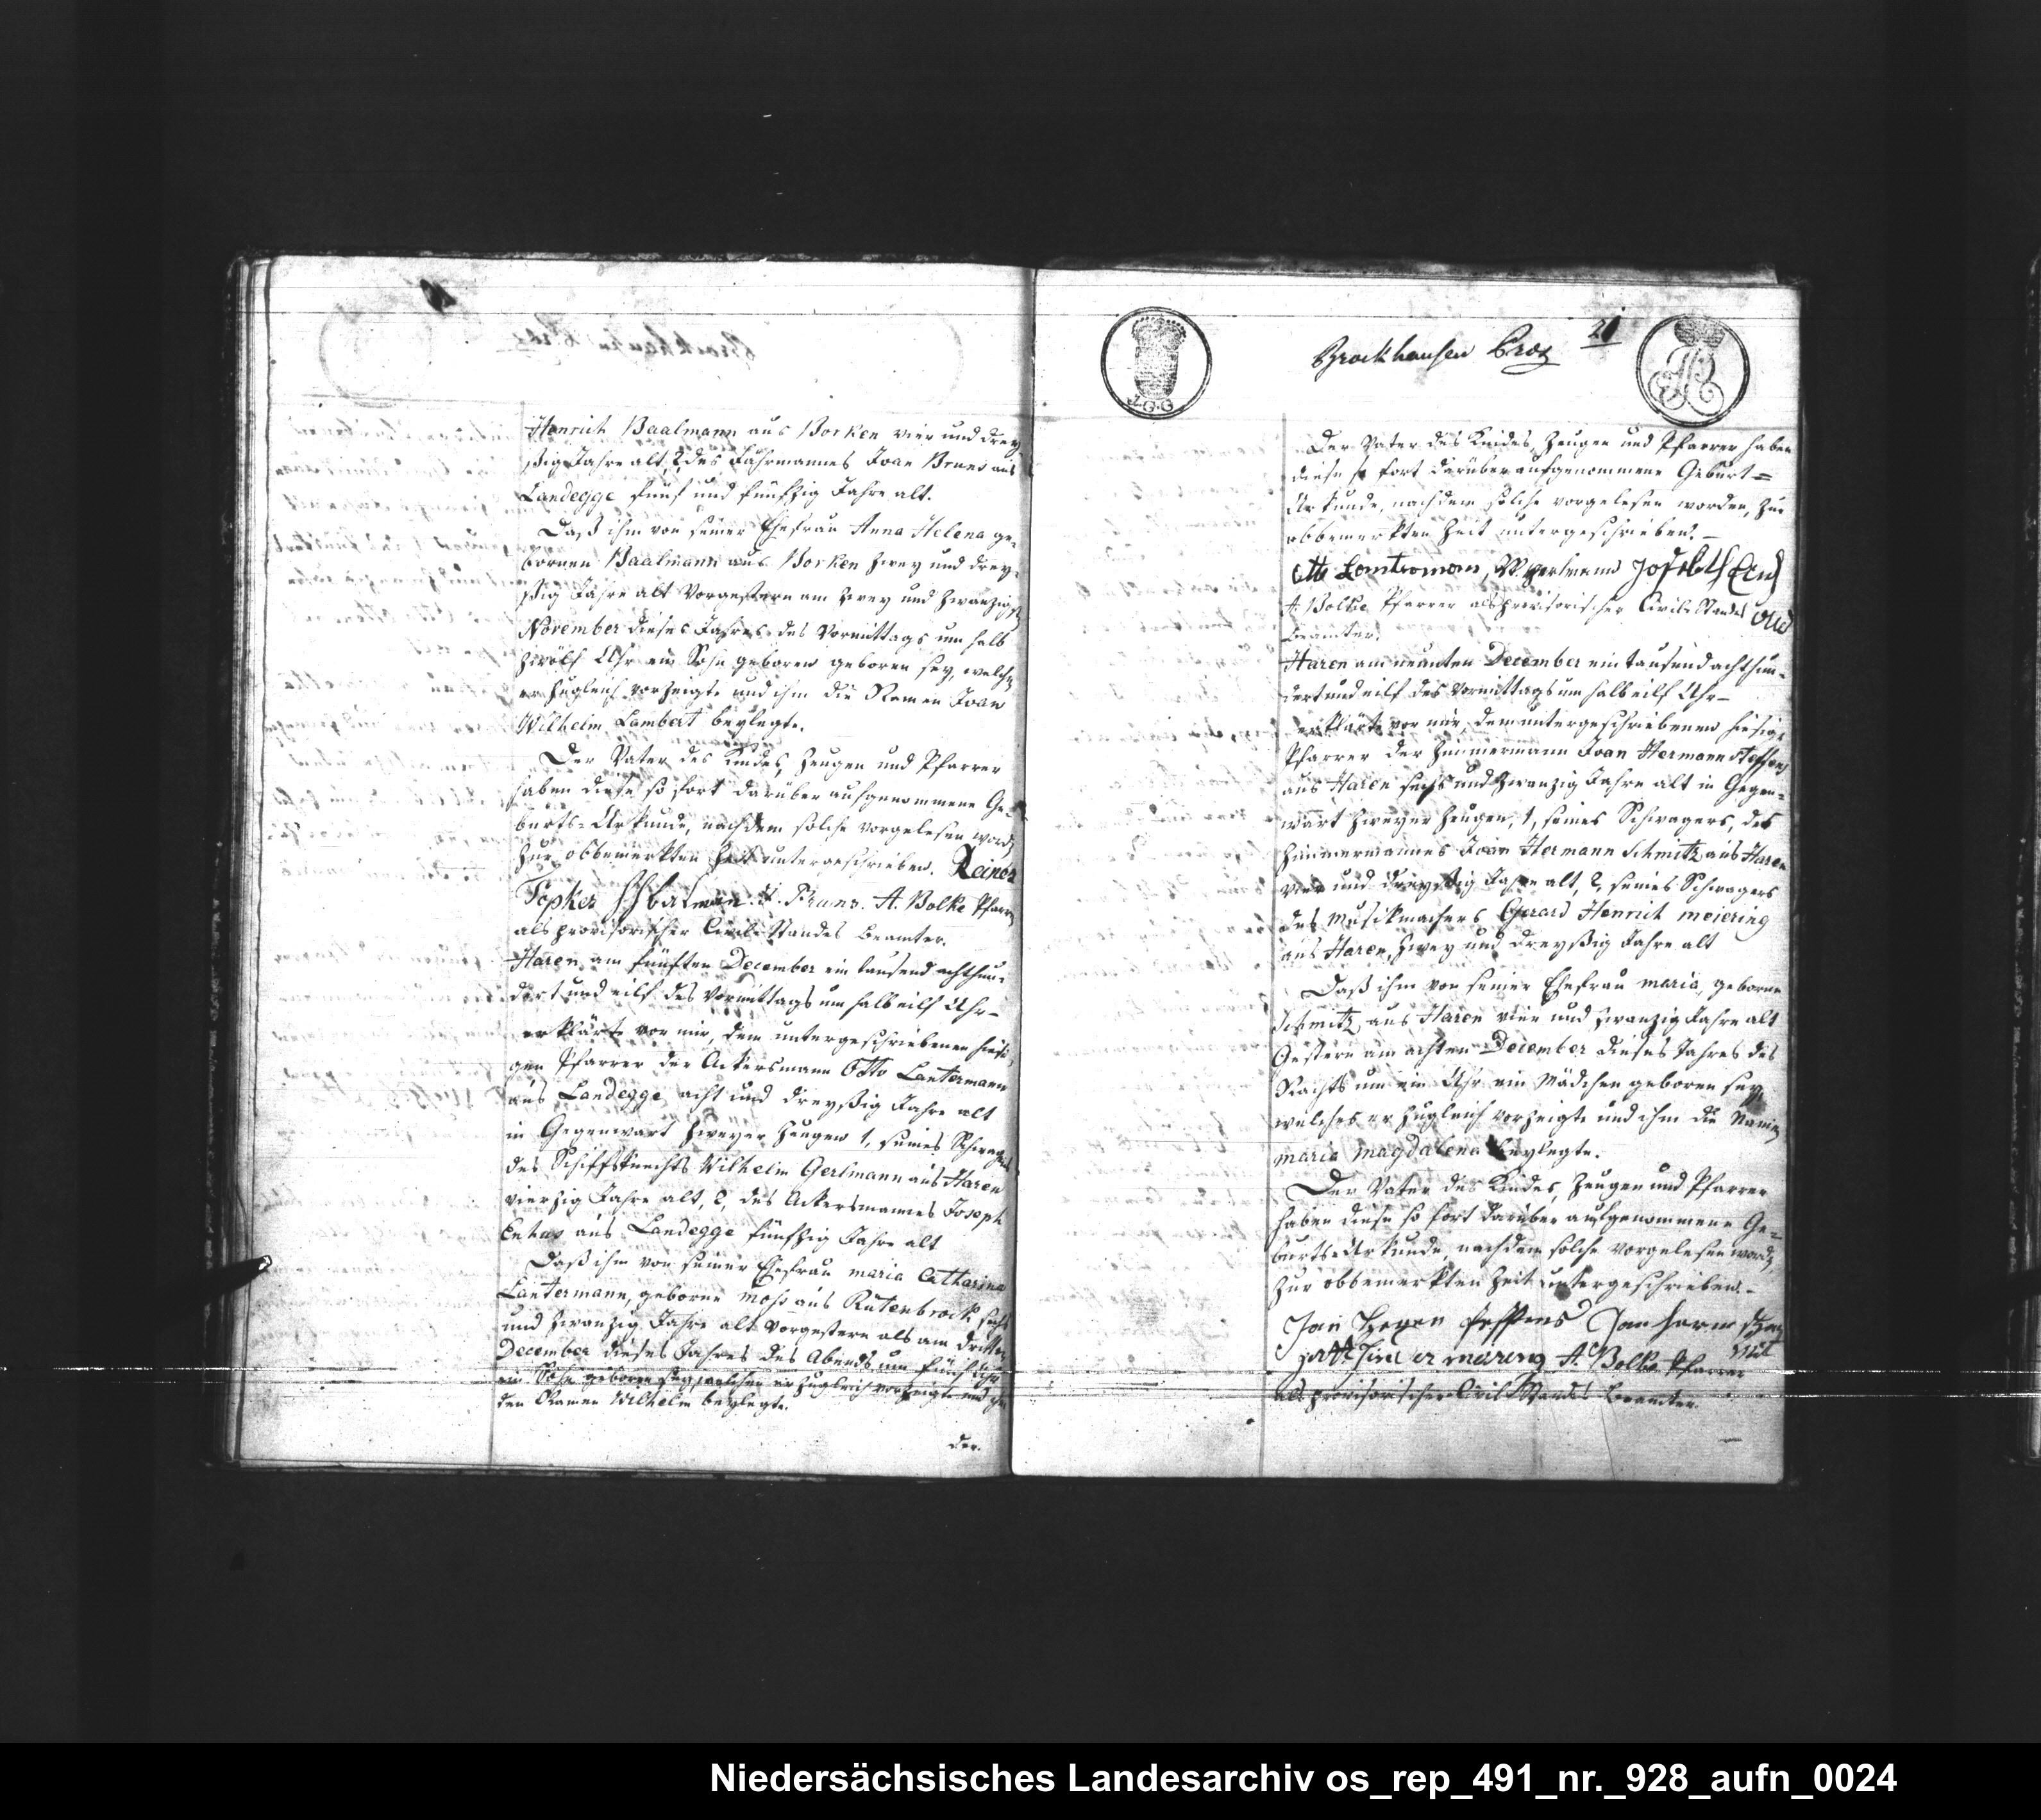 Henrich Baalmann aus Borken vier und drey
ßig Jahre alt, 2, des Fährmannes Joan Bruns aus
Landegge fünf und fünfzig Jahre alt.
Daß ihm von seiner Ehefrau Anna Helena ge-
bornen Baalmann aus Borken zwey und drey-
ßig Jahre alt Vorgestern am zwey und zwanzigsten
November dieses Jahres des Vormittags um halb
zwölf Uhr ein Sohn geboren geboren sey, welchen
er zugleich vorzeigte und ihm die Namen Joan
Wilhelm Lambert beylegte.
Der Vater des Kindes, Zeugen und Pfarrer
haben diese so fort darüber aufgenommene Ge-
burts-Urkunde, nachdem solche vorgelesen worden
zur obbemerkten Zeit unterschrieben. Reiner
Topker J. Bruns. A. Bolke Pfarrer
als provisorischer Civil-Standes Beamter.
Haren am fünften December ein tausend achthun-
dert und eilf des Vormittags um halb eilf Uhr-
erklärte vor mir, dem untergeschriebenen hiesi-
gen Pfarrer der Ackersmann Otto Lantermann
aus Landegge acht und dreyßig Jahre alt
in Gegenwart zweyer Zeugen 1, seines Schwagers
des Schiffsknechts Wilhelm Gerlmann aus Haren
vierzig Jahre alt, 2, des Ackersmannes Joseph
aus Landegge fünfzig Jahre alt
Daß ihm von seiner Ehefrau maria Catharina
Lantermann, geborne moß aus Rütenbrock sechs
und zwanzig Jahre alt Vorgestern als am dritten
December dieses Jahres des Abends um fünf Uhr
ein Sohn geboren sey, welchen er zugleich vorzeigte und ihm
den Namen Wilhelm beylegte.
der.
Brockhausen
21
J.G.G
Der Vater des Kindes, Zeugen und Pfarrer haben
diese so fort darüber aufgenommene Geburt=
Urkunde, nachdem solche vorgelesen worden, zur
obbemerkten Zeit untergeschrieben. -
A. Bolke Pfarrer als provisorischer Civil-Standes
Beamter.
Haren am neunten December ein tausend achthun-
dert und eilf des Vormittags um halb eilf Uhr-
erklärte vor mir, dem untergeschriebenen hiesigen
Pfarrer der Zimmermann Joan Hermann Steffens
aus Haren sechs und zwanzig Jahre alt in Gegen-
wart zweyer Zeugen, 1, seines Schwagers, des
Zimmermannes Joan Hermann Schmitz aus Haren
vier und dreyßig Jahre alt, 2, seines Schwagers
des Musikmachers Gerard Henrich meiering
aus Haren, zwey und dreyßig Jahre alt
Daß ihm von seiner Ehefrau maria, geborne
Schmitz, aus Haren vier und zwanzig Jahre alt
Gestern am achten December dieses Jahres des
Nachts um ein Uhr ein Mädchen geboren sey,
welches er zugleich vorzeigte und ihm die Namen
maria magdalena beylegte.
Der Vater des Kindes, Zeugen und Pfarrer
haben diese so fort darüber aufgenommene Ge=
burts-Urkunde, nachdem solche vorgelesen worden
zur obbemerkten Zeit untergeschrieben. -
Jan
A. Bolke Pfarrer
als provisorischer Civil Standes Beamter.
Niedersächsisches Landesarchiv os_rep_491_nr._928_aufn_0024